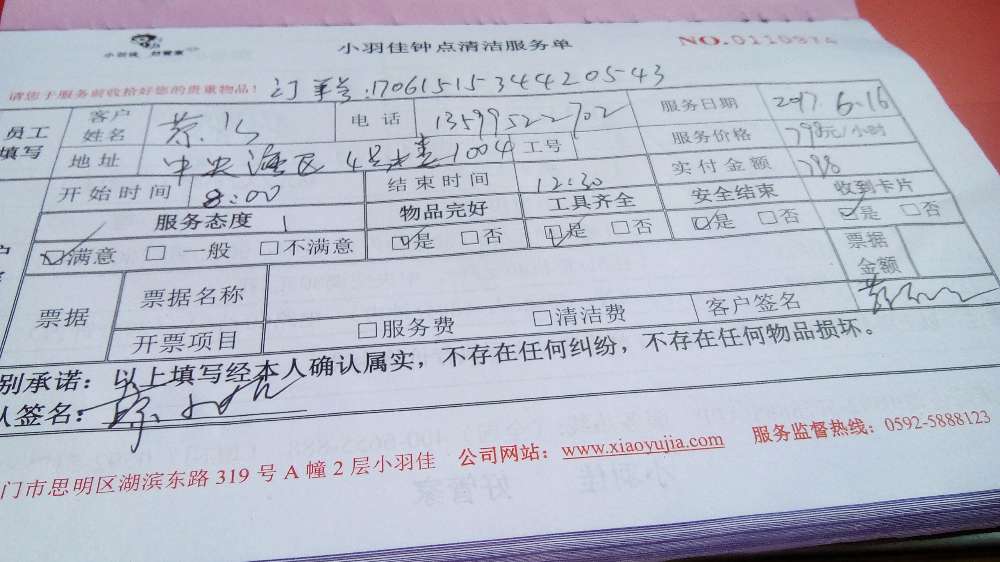 小羽佳 好管家
小羽佳钟点清洁服务单 NO.0110874
请您于服务前收拾好您的贵重物品! 订单号:170615153442 0543
员工填写 客户姓名 电话 13599522702 服务日期 2017.6.16
地址 中央海区 4号楼1004 工号 服务价格 798元/小时
开始时间 8:00 结束时间 12:30 实付金额 798
服务态度 物品完好 工具齐全 安全结束 收到卡片
☑满意 □一般 □不满意 ☑是 □否 ☑是 □否 ☑是 □否 ☑是 □否
票据 票据名称 票据金额
开票项目 □服务费 □清洁费 客户签名
别承诺:以上填写经本人确认属实,不存在任何纠纷,不存在任何物品损坏。
人签名:
门市思明区湖滨东路 319 号 A 幢 2 层小羽佳 公司网站:www.xiaoyujia.com 服务监督热线:0592-5888123
小羽佳 好管家